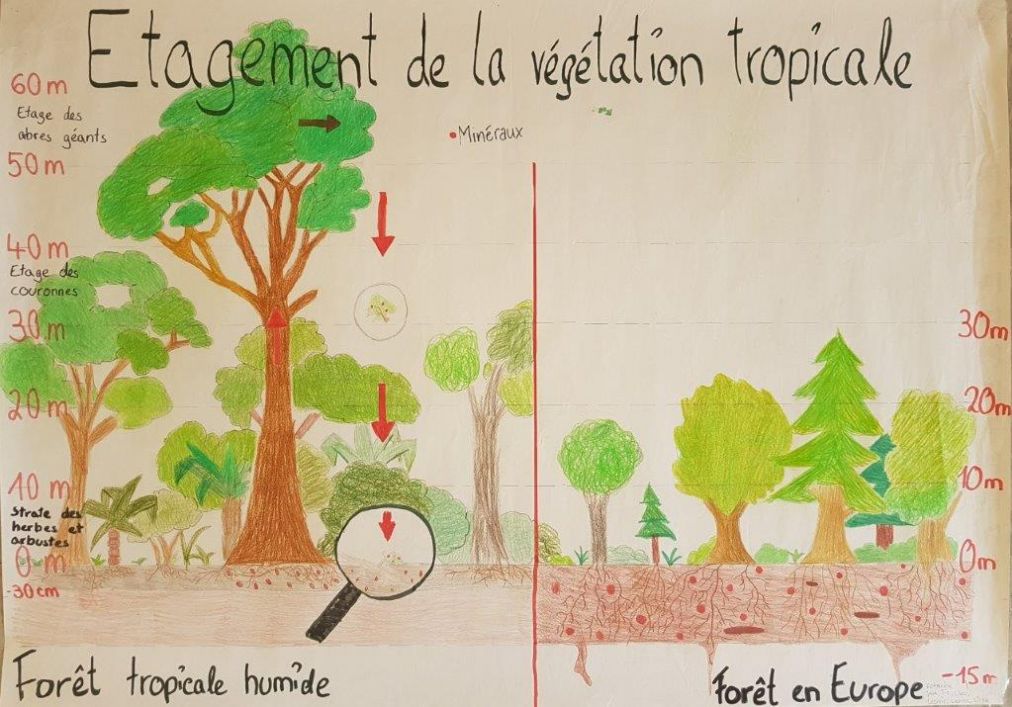 Etagement de la végétation tropicale
60 m
Etage des
abres géants
• Minéraux
50 m
40 m
Etage des
couronnes
30 m
20 m
10 m
Strate des
herbes et
arbustes
0 m
-30 cm
30m
20m
10m
0m
-15m
Forêt tropicale humide
Forêt en Europe